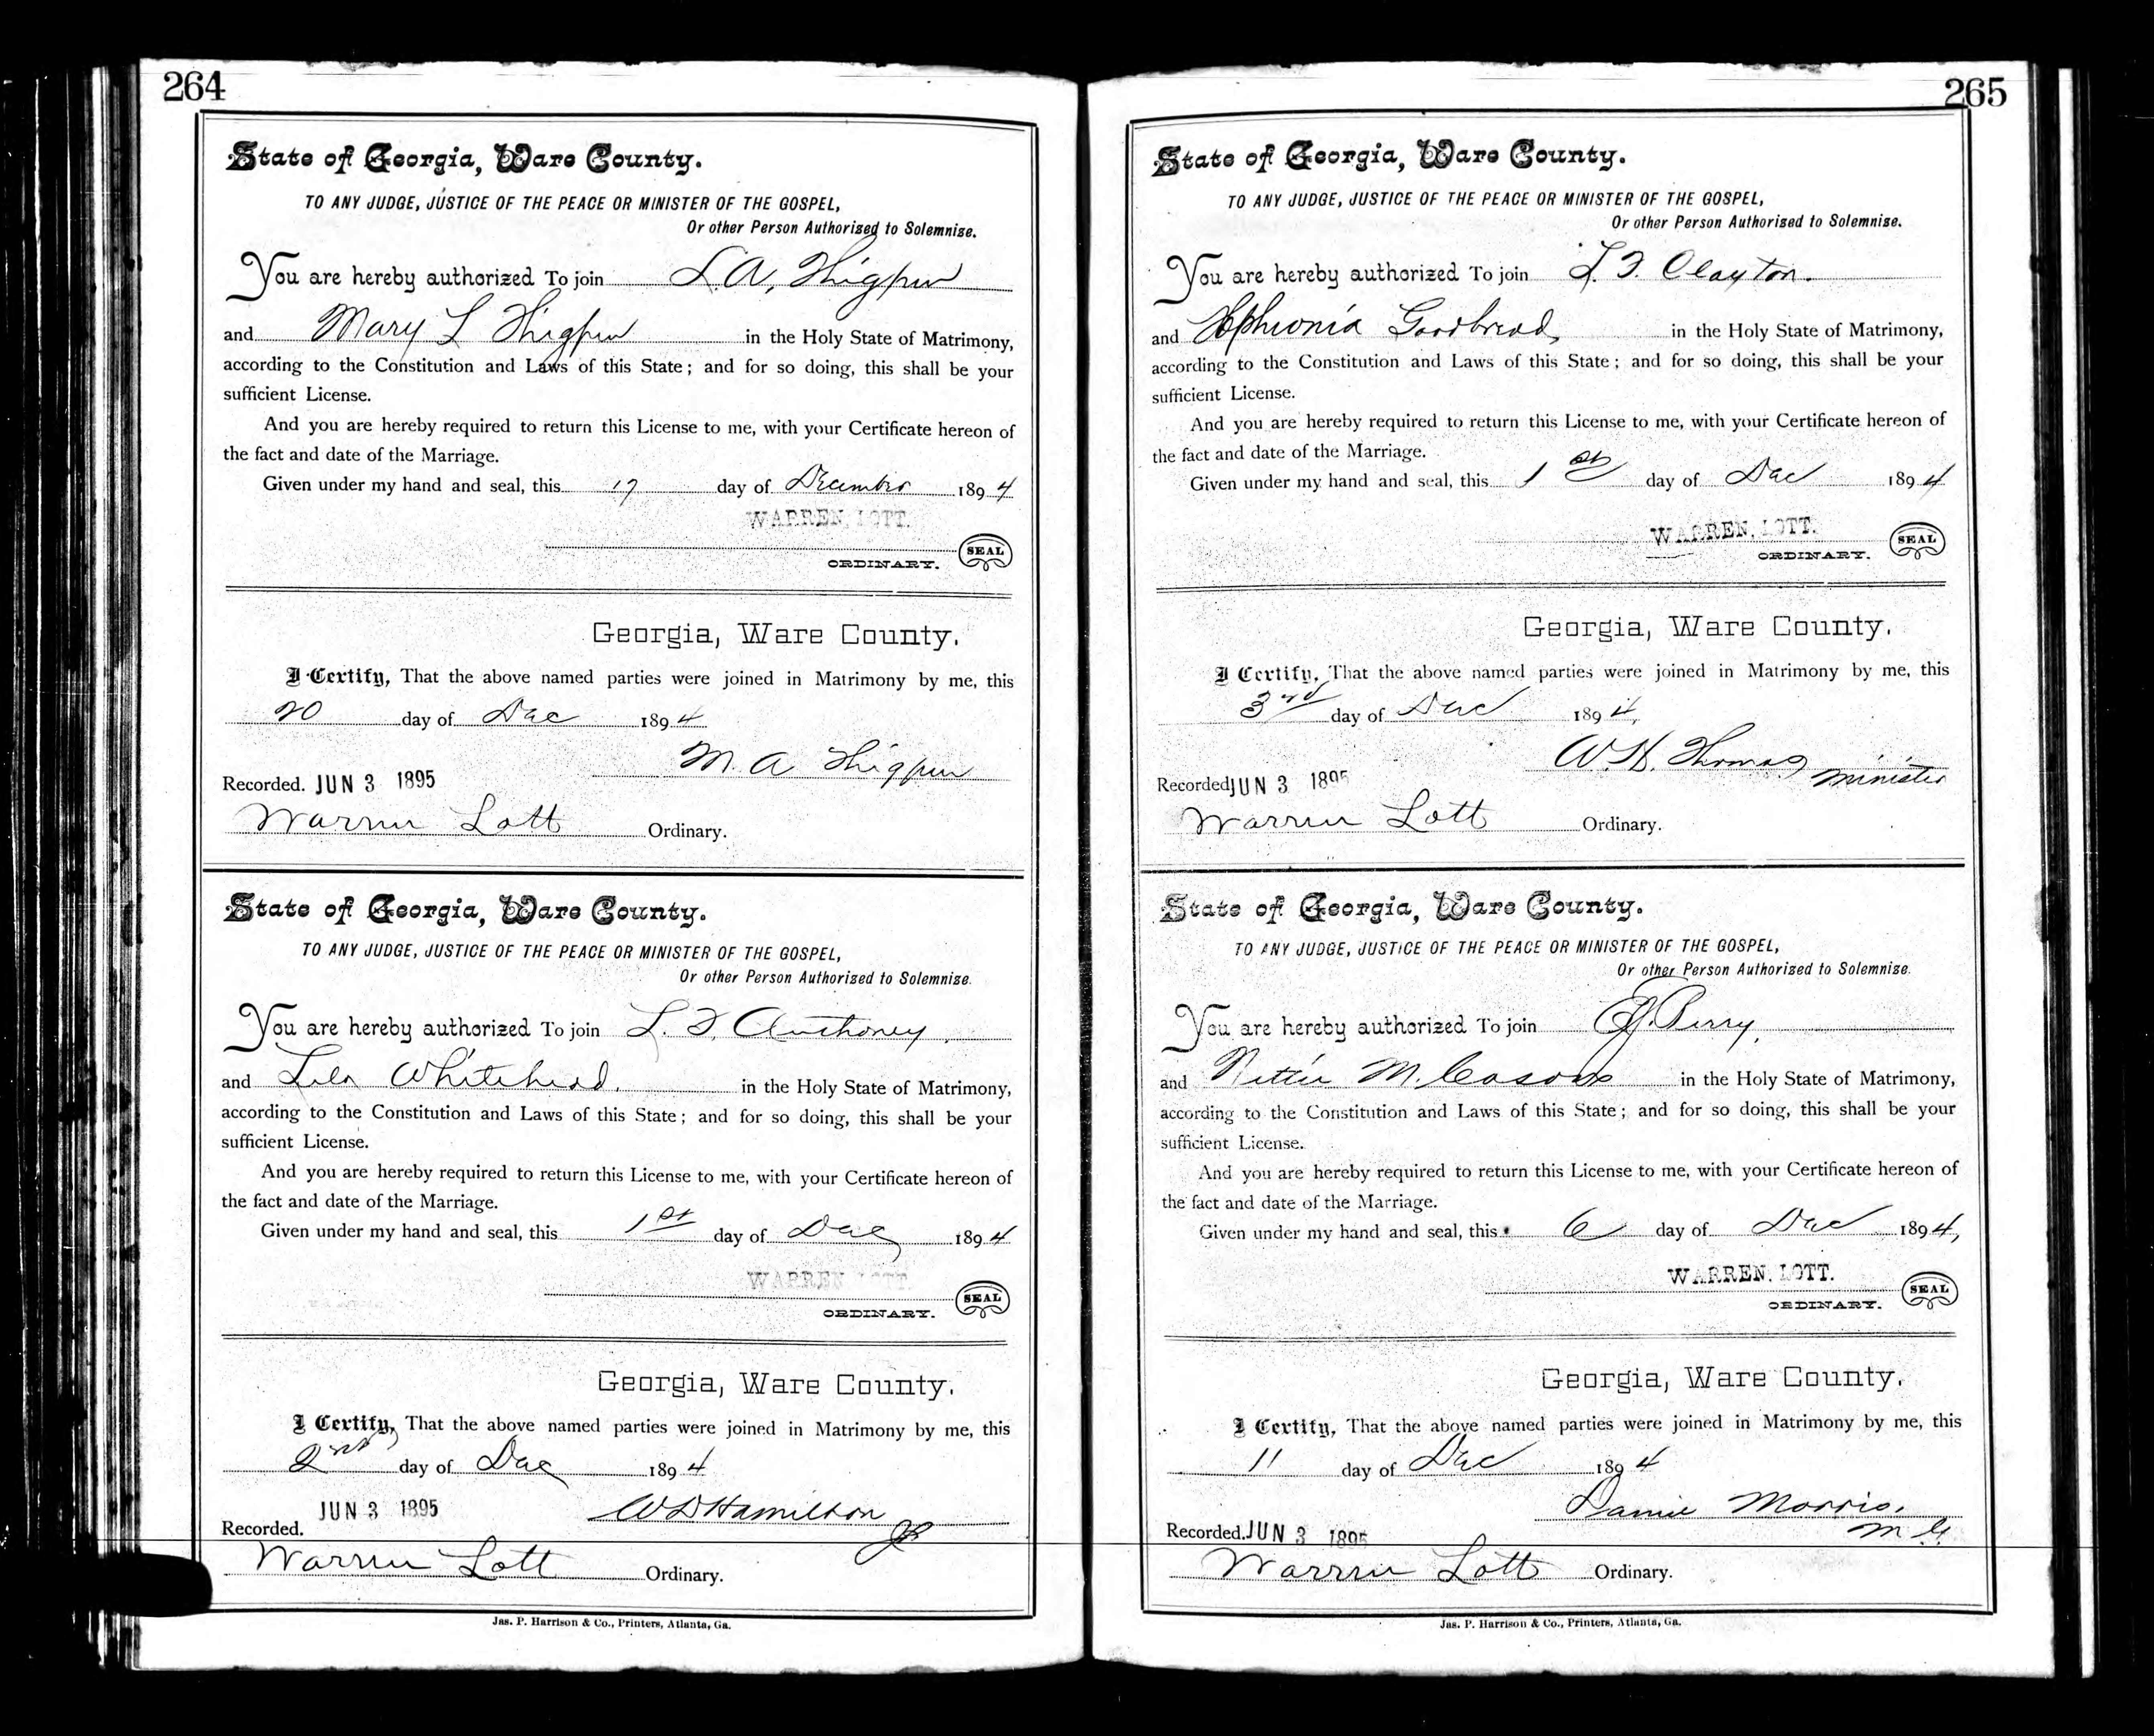 264
State of Georgia, Ware County.
TO ANY JUDGE, JUSTICE OF THE PEACE OR MINISTER OF THE GOSPEL,
Or other Person Authorized to Solemnize.
You are hereby authorized To join L. A. Thigpen
and Mary L Thigpen in the Holy State of Matrimony,
according to the Constitution and Laws of this State; and for so doing, this shall be your
sufficient License.
And you are hereby required to return this License to me, with your Certificate hereon of
the fact and date of the Marriage.
Given under my hand and seal, this 17 day of December 1894
WARREN LOTT.
ORDINARY. SEAL
Georgia, Ware County.
I Certify, That the above named parties were joined in Matrimony by me, this
20 day of Dec 1894
M. A Thigpen
Recorded. JUN 3 1895
Warren Lott Ordinary.
State of Georgia, Ware County.
TO ANY JUDGE, JUSTICE OF THE PEACE OR MINISTER OF THE GOSPEL,
Or other Person Authorized to Solemnize.
You are hereby authorized To join L. F. Anthoney
and Lila Whitehead. in the Holy State of Matrimony,
according to the Constitution and Laws of this State; and for so doing, this shall be your
sufficient License.
And you are hereby required to return this License to me, with your Certificate hereon of
the fact and date of the Marriage.
Given under my hand and seal, this 1st day of Dec 1894
WARREN LOTT
ORDINARY. SEAL
Georgia, Ware County.
I Certify, That the above named parties were joined in Matrimony by me, this
2nd day of Dec 1894
W D Hamilton
JP
Recorded. JUN 3 1895
Warren Lott Ordinary.
Jas. P. Harrison & Co., Printers, Atlanta, Ga.
265
State of Georgia, Ware County.
TO ANY JUDGE, JUSTICE OF THE PEACE OR MINISTER OF THE GOSPEL,
Or other Person Authorized to Solemnize.
You are hereby authorized To join L. F. Clayton.
and Goodbread, in the Holy State of Matrimony,
according to the Constitution and Laws of this State; and for so doing, this shall be your
sufficient License.
And you are hereby required to return this License to me, with your Certificate hereon of
the fact and date of the Marriage.
Given under my hand and seal, this 1st day of Dec 1894
WARREN. LOTT.
ORDINARY. SEAL
Georgia, Ware County.
I Certify, That the above named parties were joined in Matrimony by me, this
3rd day of Dec 1894,
W. H. Thomas
minister
Recorded JUN 3 1895
Warren Lott Ordinary.
State of Georgia, Ware County.
TO ANY JUDGE, JUSTICE OF THE PEACE OR MINISTER OF THE GOSPEL,
Or other Person Authorized to Solemnize.
You are hereby authorized To join Perry,
and Nettie M. Casons in the Holy State of Matrimony,
according to the Constitution and Laws of this State; and for so doing, this shall be your
sufficient License.
And you are hereby required to return this License to me, with your Certificate hereon of
the fact and date of the Marriage.
Given under my hand and seal, this 6 day of Dec 1894,
WARREN. LOTT.
ORDINARY. SEAL
Georgia, Ware County.
I Certify, That the above named parties were joined in Matrimony by me, this
11 day of Dec 1894
Morris,
M. G.
Recorded. JUN 3 1895
Warren Lott Ordinary.
Jas. P. Harrison & Co., Printers, Atlanta, Ga.